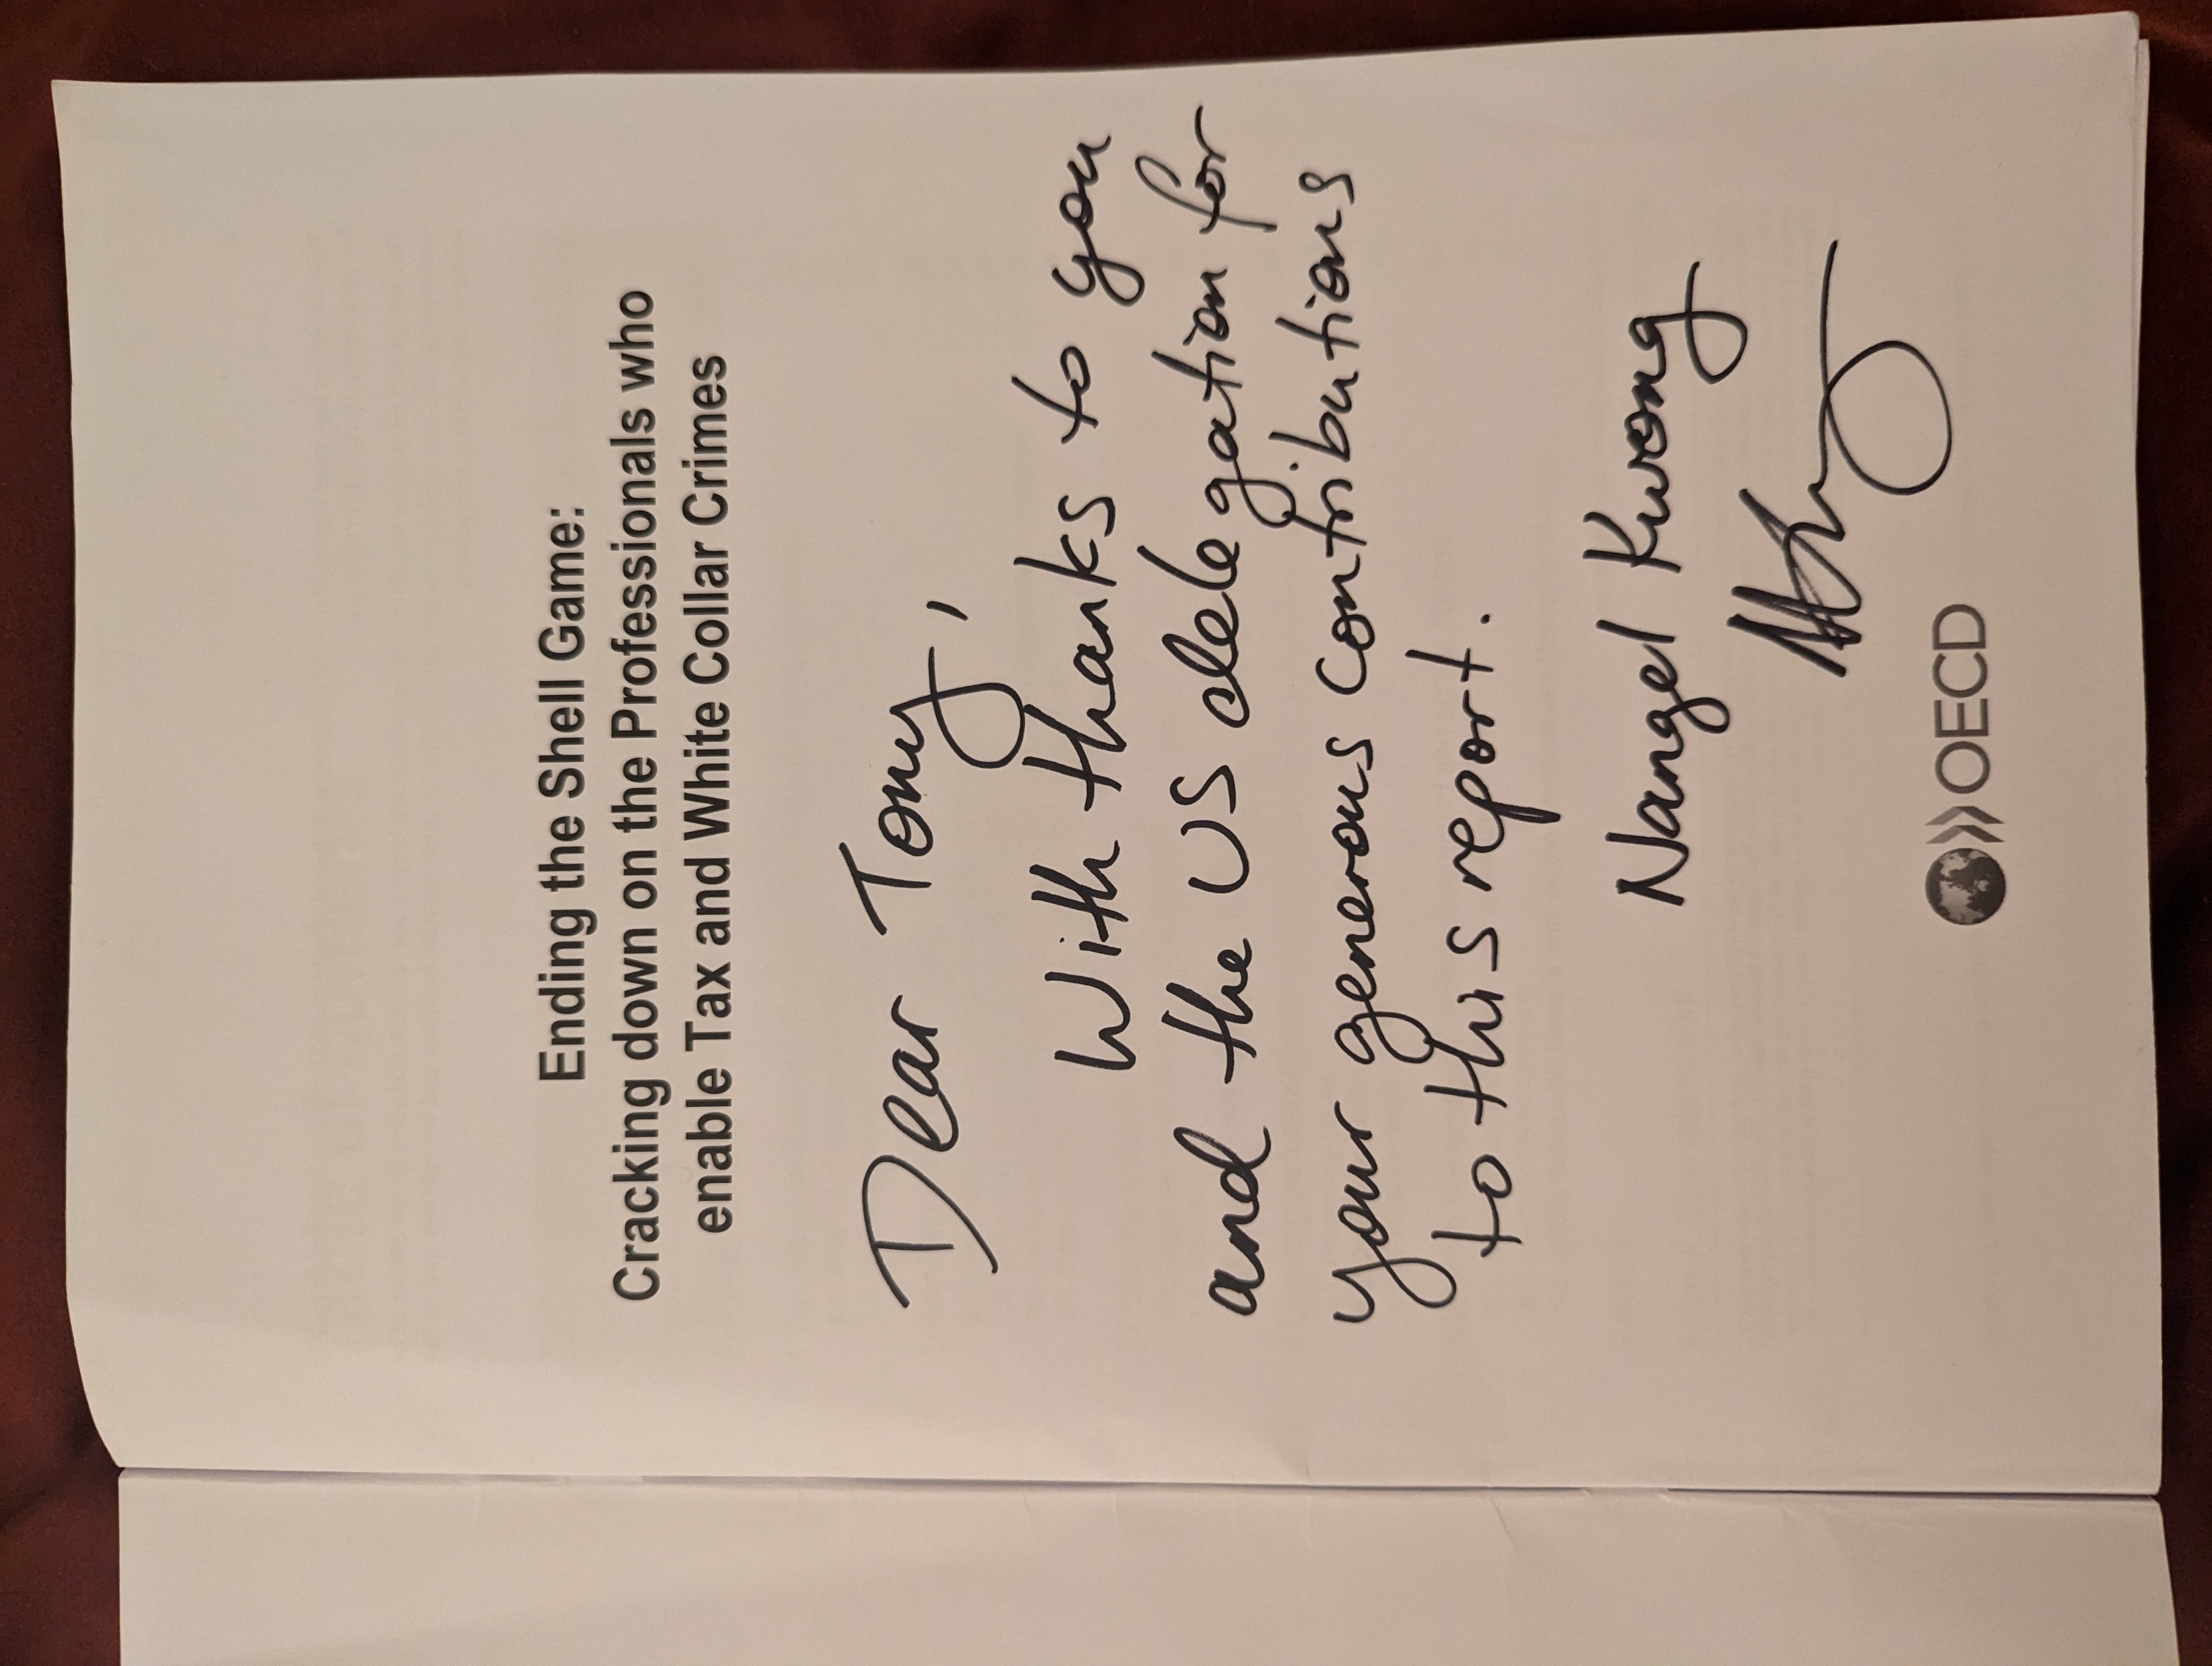 Ending the Shell Game:
Cracking down on the Professionals who
enable Tax and White Collar Crimes
Dear Tony,
With thanks to you
and the US delegation for
your generous contributions
to this report.
Nangel Kwong
OECD